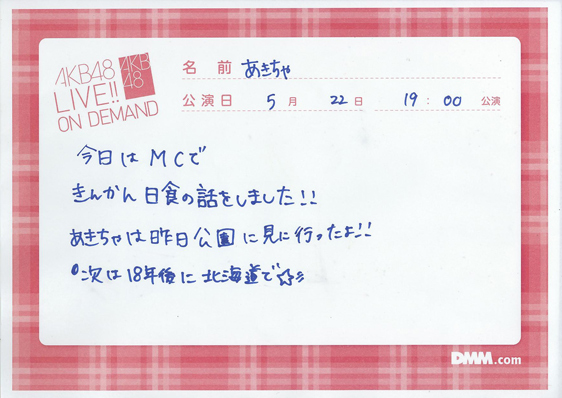 AKB48
LIVE!!
ON DEMAND
AKB
48
名前 あきちゃ
公演日 5月 22日 19:00 公演
今日はMCで
きんかん日食の話をしました!!
あきちゃは昨日公園に見に行ったよ!!
次は18年後に北海道で☆彡
DMM.com